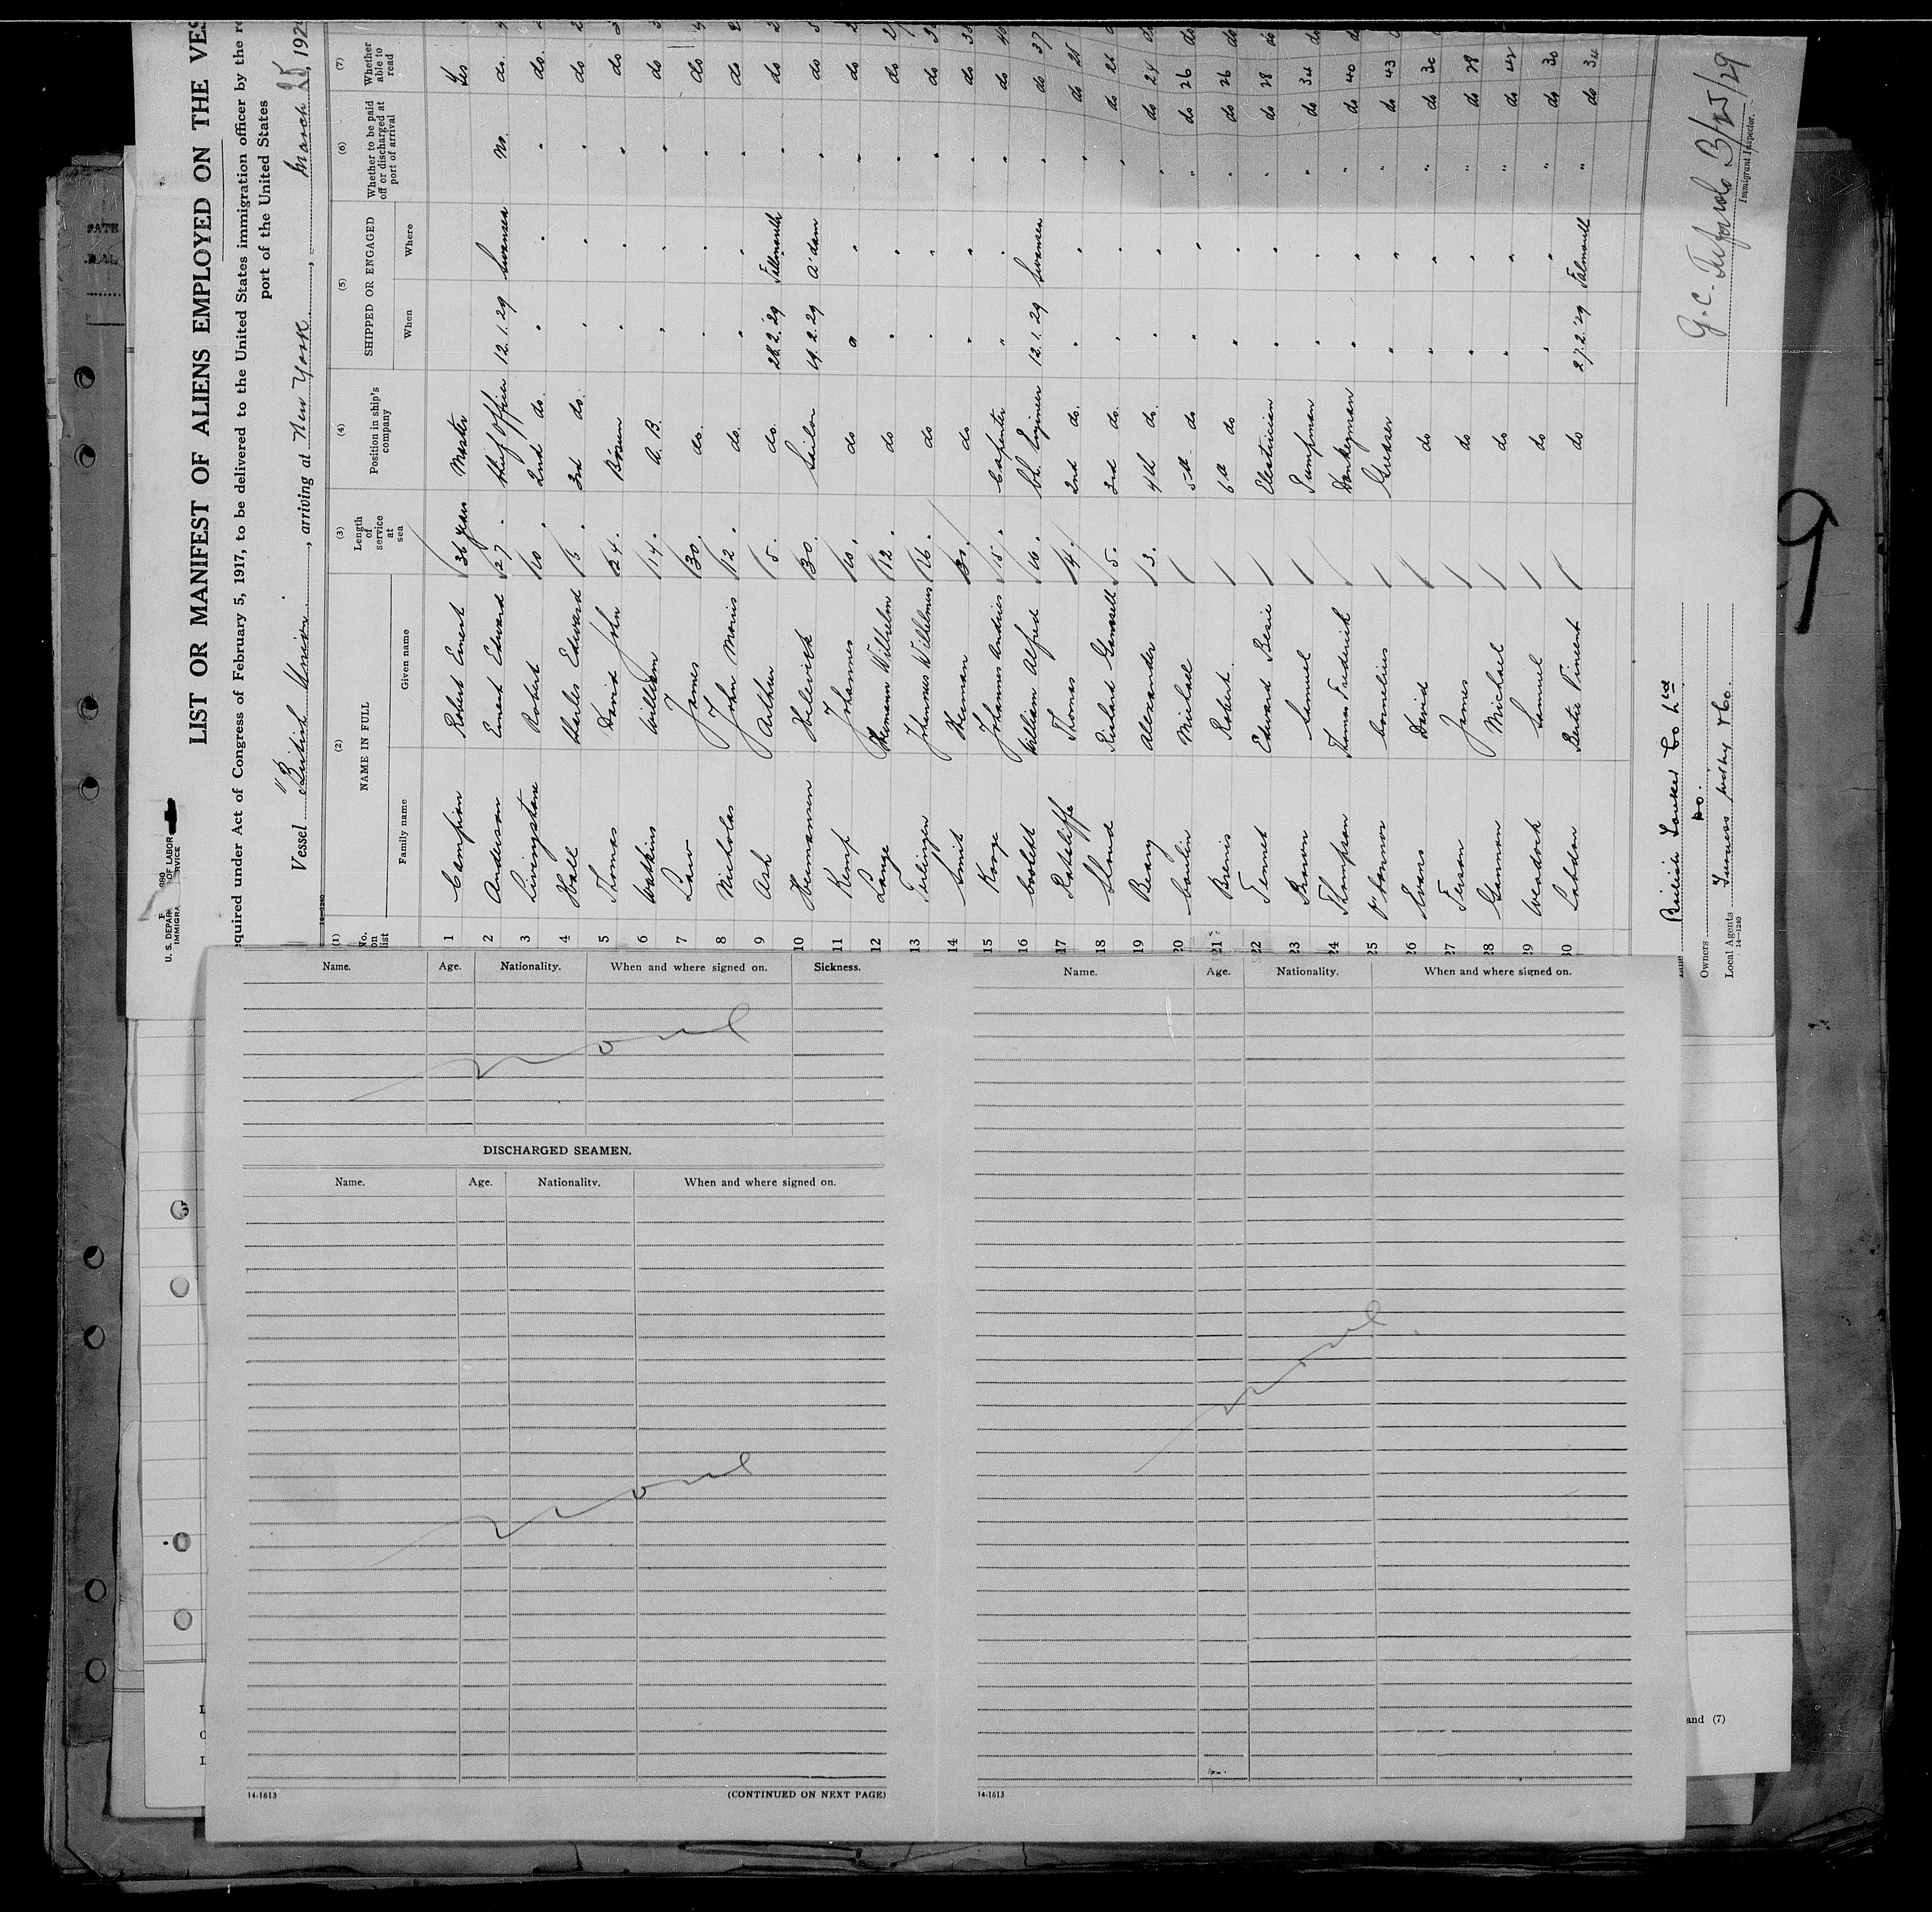 LIST OR MANIFEST OF ALIENS EMPLOYED ON THE VES
equired under Act of Congress of February 5, 1917, to be delivered to the United States immigration officer by the re
port of the United States
U. S. DEPAR OF LABOR
IMMIGRA SERVICE
Vessel "British Union", arriving at New York, March 25, 192
14-1240
(1) (2) (3) (4) (5) (6) (7)
No. on list NAME IN FULL Length of service at sea Position in ship's company SHIPPED OR ENGAGED Whether to be paid off or discharged at port of arrival Whether able to read
Family name Given name When Where
1 Campion Robert Ernest 36 years Master Yes
2 Anderson Ernest Edward 27 Chief Officer 12.1.29 Swansea No. do.
3 Livingstone Robert 10 2nd do. " " " do.
4 Hall Charles Edward 3rd do. " " " do
5 Thomas David John 24. Bosun " " " do
6 Watkins William 14. A.B. " " " do
7 Law James 30. do. " " " do
8 Nicholas John Morris 12. do. " " " do
9 Ash Arthur 5. do. 28.2.29 Fallmouth " do
10 Hermansen 30. Sailor 19.2.29 A'dam " do
11 Kemp Johannes 10. do " " " do
12 Lange Hermann Wilhelm 12. do " " " do
13 Johannes Wilhelmus 16. do " " " do
14 Smit Herman 30. do " " " do
15 Johannes Andries 15. Carpenter " " " do
16 William Alfred 16. Ch. Engineer 12.1.29 Swansea " do 37
17 Ratcliffe Thomas 14. 2nd do. " " " do 25
18 Richard 5. 3rd do. " " " do 26
19 Alexander 3. 4th do. " " " do 24 do
20 Michael 5th do " " " do 26 do
21 Robert 6th do " " " do 26 do
22 Edward Electrician " " " do 28 do
23 Brown Samuel Pumpman " " " do 34 do
24 Thompson Thomas Frederick Donkeyman " " " do 40 do
25 O'Connor Cornelius Greaser " " " do 43
26 Evans David do " " " do 30
27 James do " " " do 28
28 Michael do " " " do 42
29 Samuel do " " " do 30
30 Bertie Vincent do 27.2.29 Falmouth " do 34
British Tanker Co Ltd
Owners Do.
Local Agents Furness Withy & Co.
14-1240
3/25/29
Immigrant Inspector.
9
Name. Age. Nationality. When and where signed on. Sickness.
None
DISCHARGED SEAMEN.
Name. Age. Nationality. When and where signed on.
None
14-1613
(CONTINUED ON NEXT PAGE)
Name. Age. Nationality. When and where signed on.
None
14-1613
and (7)